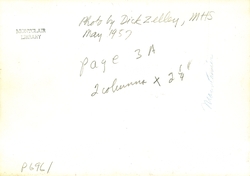 MONTCLAIR
LIBRARY
Photo by Dick Zelley, MHS
May 1957
page 3A
2 columns x 2 1/8"
P6961